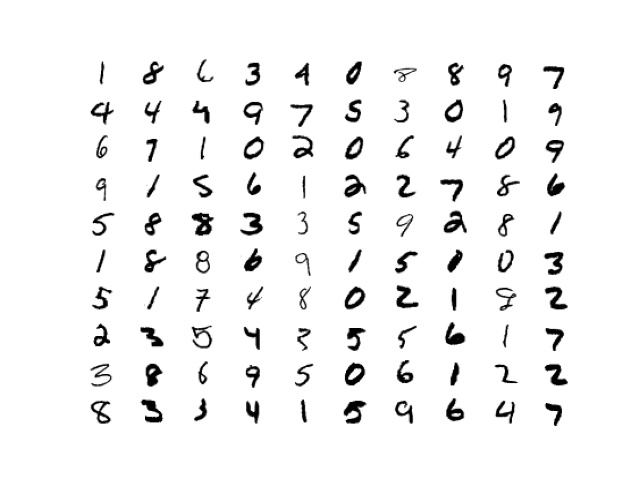 1 8 6 3 4 0 8 8 9 7
4 4 4 9 7 5 3 0 1 9
6 7 1 0 2 0 6 4 0 9
9 1 5 6 1 2 2 7 8 6
5 8 8 3 3 5 9 2 8 1
1 8 8 6 9 1 5 1 0 3
5 1 7 4 8 0 2 1 8 2
2 3 5 4 3 5 5 6 1 7
3 8 6 9 5 0 6 1 2 2
8 3 3 4 1 5 9 6 4 7